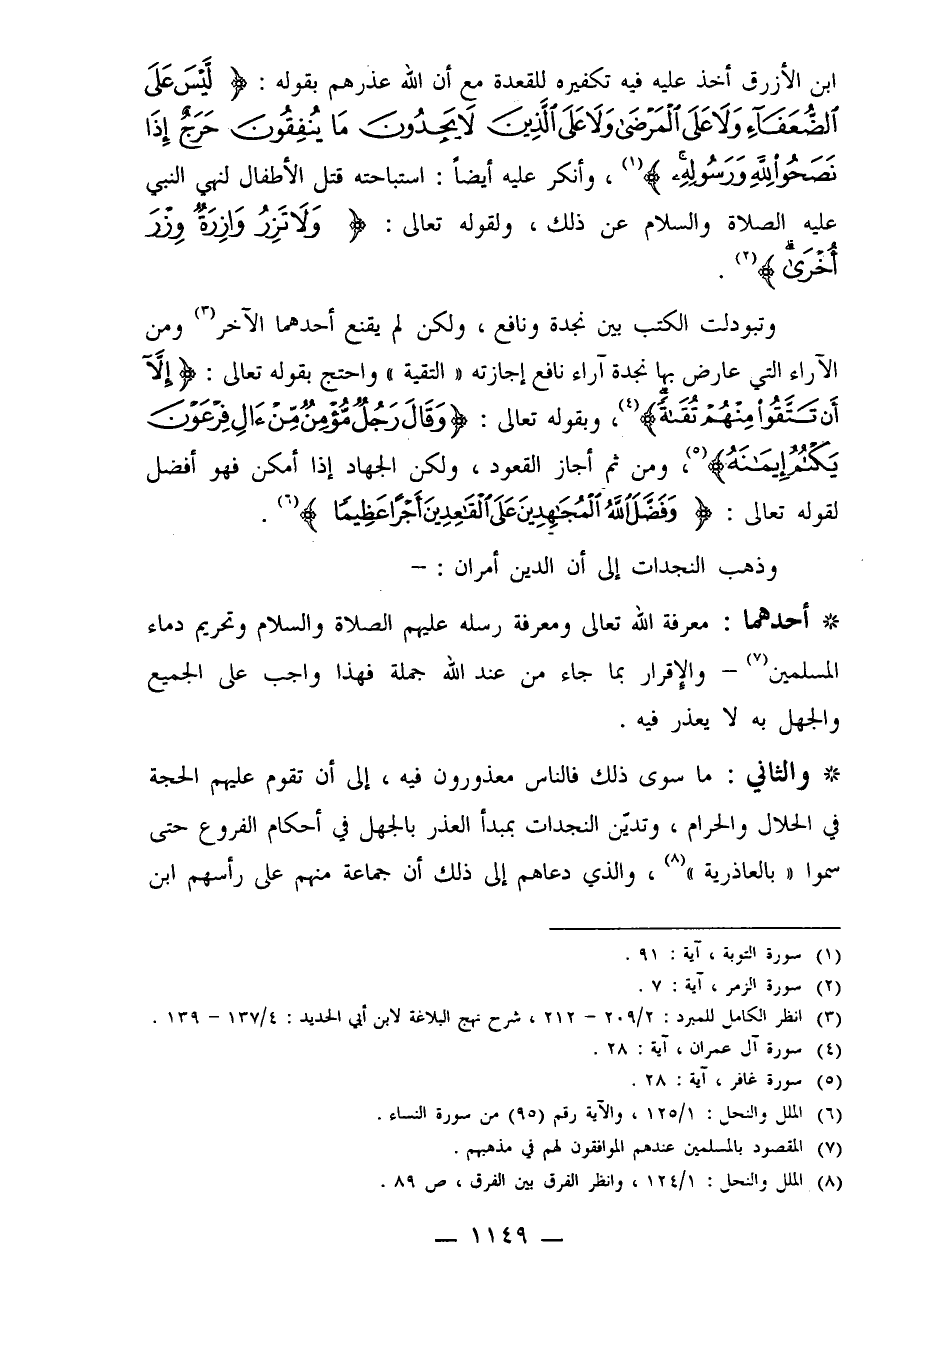 ابن الأزرق أخذ عليه فيه تكفيره للقعدة مع أن الله عذرهم بقوله : ﴿ لَّيْسَ عَلَى
ٱلضُّعَفَآءِ وَلَا عَلَى ٱلْمَرْضَىٰ وَلَا عَلَى ٱلَّذِينَ لَا يَجِدُونَ مَا يُنفِقُونَ حَرَجٌ إِذَا
نَصَحُوا۟ لِلَّهِ وَرَسُولِهِۦ ﴾(١) ، وأنكر عليه أيضاً : استباحته قتل الأطفال لنهي النبي
عليه الصلاة والسلام عن ذلك ، ولقوله تعالى : ﴿ وَلَا تَزِرُ وَازِرَةٌ وِزْرَ
أُخْرَىٰ ﴾(٢) .
وتبودلت الكتب بين نجدة ونافع ، ولكن لم يقنع أحدهما الآخر(٣) ومن
الآراء التي عارض بها نجدة آراء نافع إجازته « التقية » واحتج بقوله تعالى : ﴿ إِلَّآ
أَن تَتَّقُوا۟ مِنْهُمْ تُقَىٰةً ﴾(٤)، وبقوله تعالى : ﴿ وَقَالَ رَجُلٌ مُّؤْمِنٌ مِّنْ ءَالِ فِرْعَوْنَ
يَكْتُمُ إِيمَـٰنَهُۥٓ ﴾(٥)، ومن ثم أجاز القعود ، ولكن الجهاد إذا أمكن فهو أفضل
لقوله تعالى : ﴿ وَفَضَّلَ ٱللَّهُ ٱلْمُجَـٰهِدِينَ عَلَى ٱلْقَـٰعِدِينَ أَجْرًا عَظِيمًا ﴾(٦) .
وذهب النجدات إلى أن الدين أمران : –
* أحدهما : معرفة الله تعالى ومعرفة رسله عليهم الصلاة والسلام وتحريم دماء
المسلمين(٧) – والإقرار بما جاء من عند الله جملة فهذا واجب على الجميع
والجهل به لا يعذر فيه .
* والثاني : ما سوى ذلك فالناس معذورون فيه ، إلى أن تقوم عليهم الحجة
في الحلال والحرام ، وتديّن النجدات بمبدأ العذر بالجهل في أحكام الفروع حتى
سموا « بالعاذرية »(٨) ، والذي دعاهم إلى ذلك أن جماعة منهم على رأسهم ابن
(١) سورة التوبة ، آية : ٩١ .
(٢) سورة الزمر ، آية : ٧ .
(٣) انظر الكامل للمبرد : ٢٠٩/٢ – ٢١٢ ، شرح نهج البلاغة لابن أبي الحديد : ١٣٧/٤ – ١٣٩ .
(٤) سورة آل عمران ، آية : ٢٨ .
(٥) سورة غافر ، آية : ٢٨ .
(٦) الملل والنحل : ١٢٥/١ ، والآية رقم (٩٥) من سورة النساء .
(٧) المقصود بالمسلمين عندهم الموافقون لهم في مذهبهم .
(٨) الملل والنحل : ١٢٤/١ ، وانظر الفرق بين الفرق ، ص ٨٩ .
— ١١٤٩ —